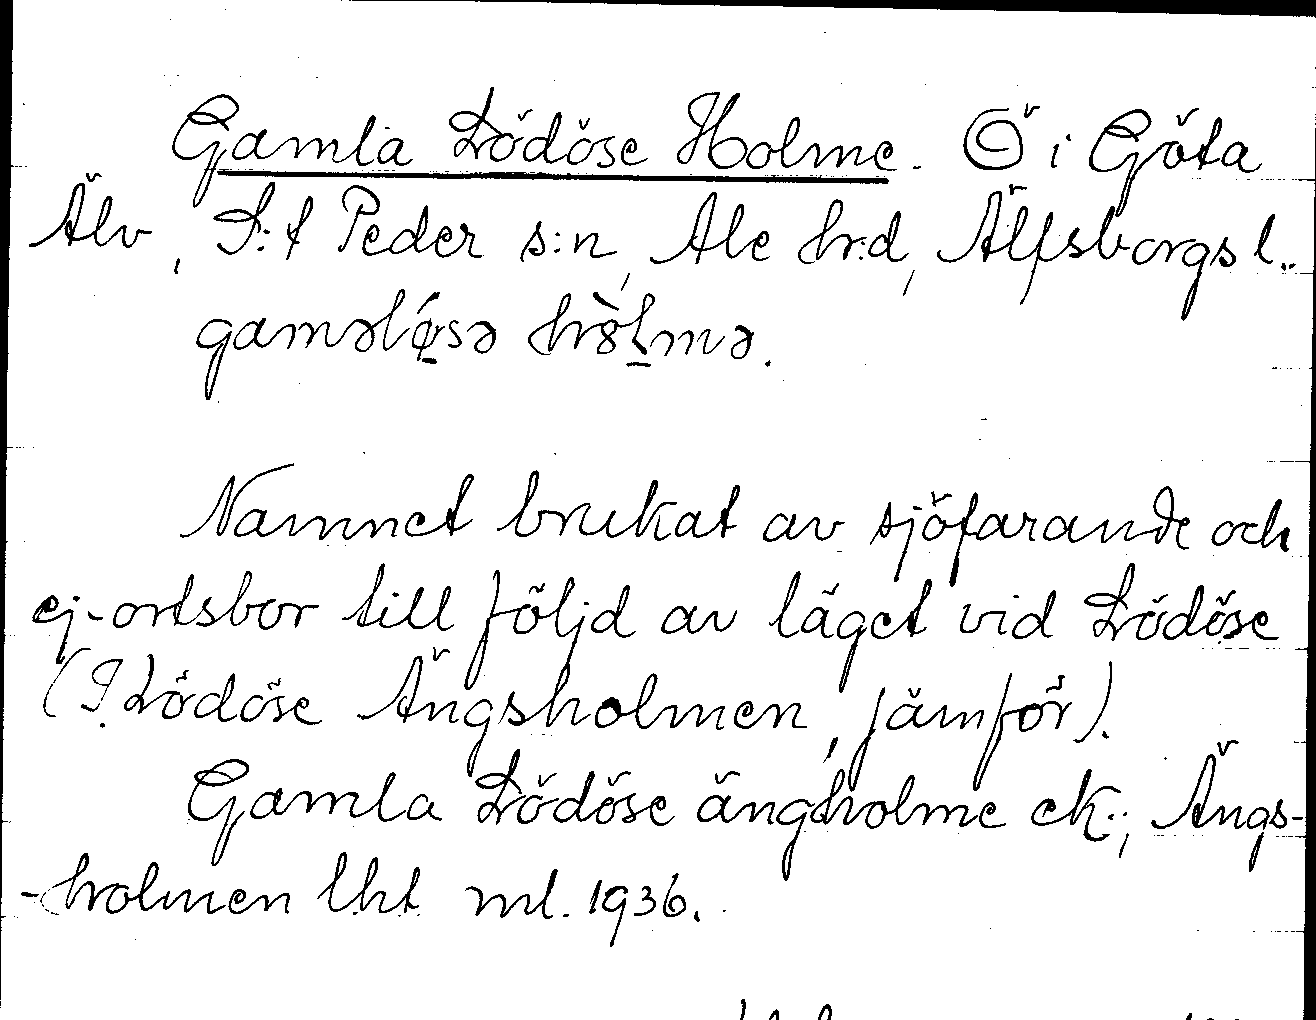 Gamla Lödöse Holme. Ö i Göta
Älv, S:t Peder s:n, Ale hr:d, Älfsborgs l..
gaməlǿ̱sə hòḻmə.
Namnet brukat av sjöfarande och
ej-ortsbor till följd av läget vid Lödöse
(? Lödöse Ängsholmen, jämför).
Gamla Lödöse ängholme ek.; Ängs-
-holmen lht ml. 1936.